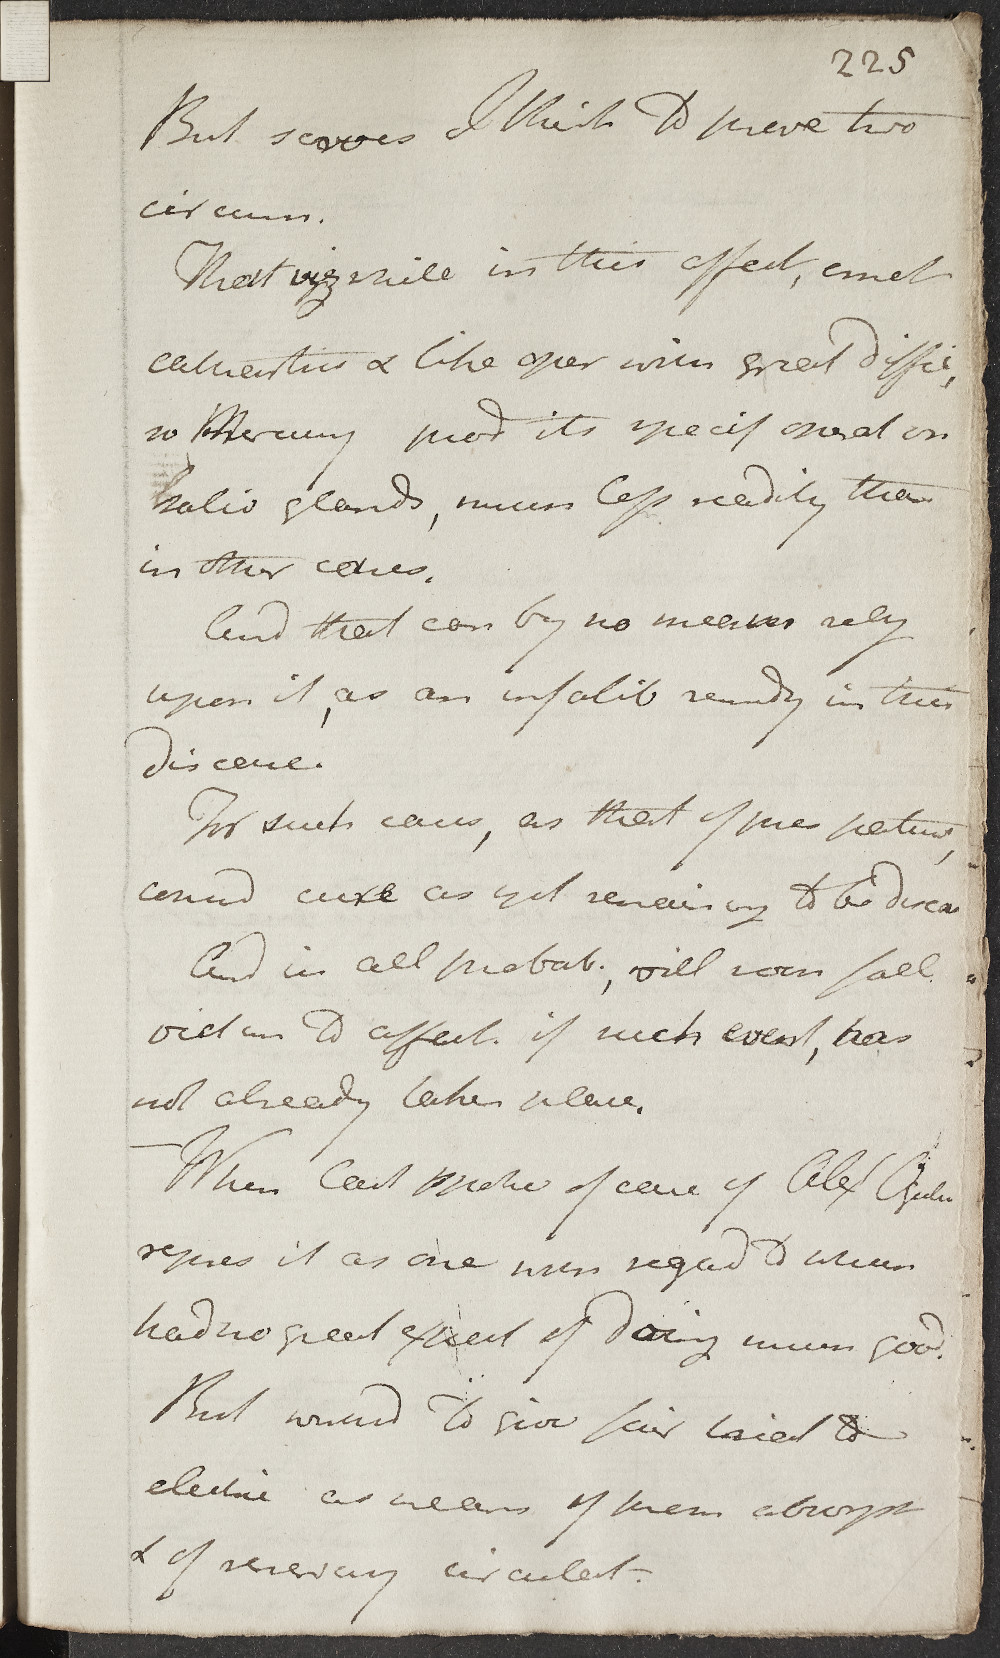 225
But serves I think to prove two
circum.
That viz while in this affect, emet
cathartics & like oper with great diffic,
so Mercury prod its specif operat on
saliv glands, much less readily than
in other cases.
And that can by no means rely
upon it, as an infalib remedy in this
disease.
For such cases, as that of pres patient,
cure as yet remaining to be discov
And in all probab., will soon fall
victim to affect. if such event, has
not already taken place.
When last spoke of case of Alex
repres it as one with regard to whom
had no great expect of doing much good.
But wished to give fair trial to
electric as means of prom absorpt
& of renewing circulat.